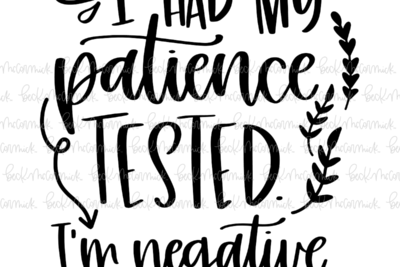 I HAD MY
patience
TESTED.
I'm negative